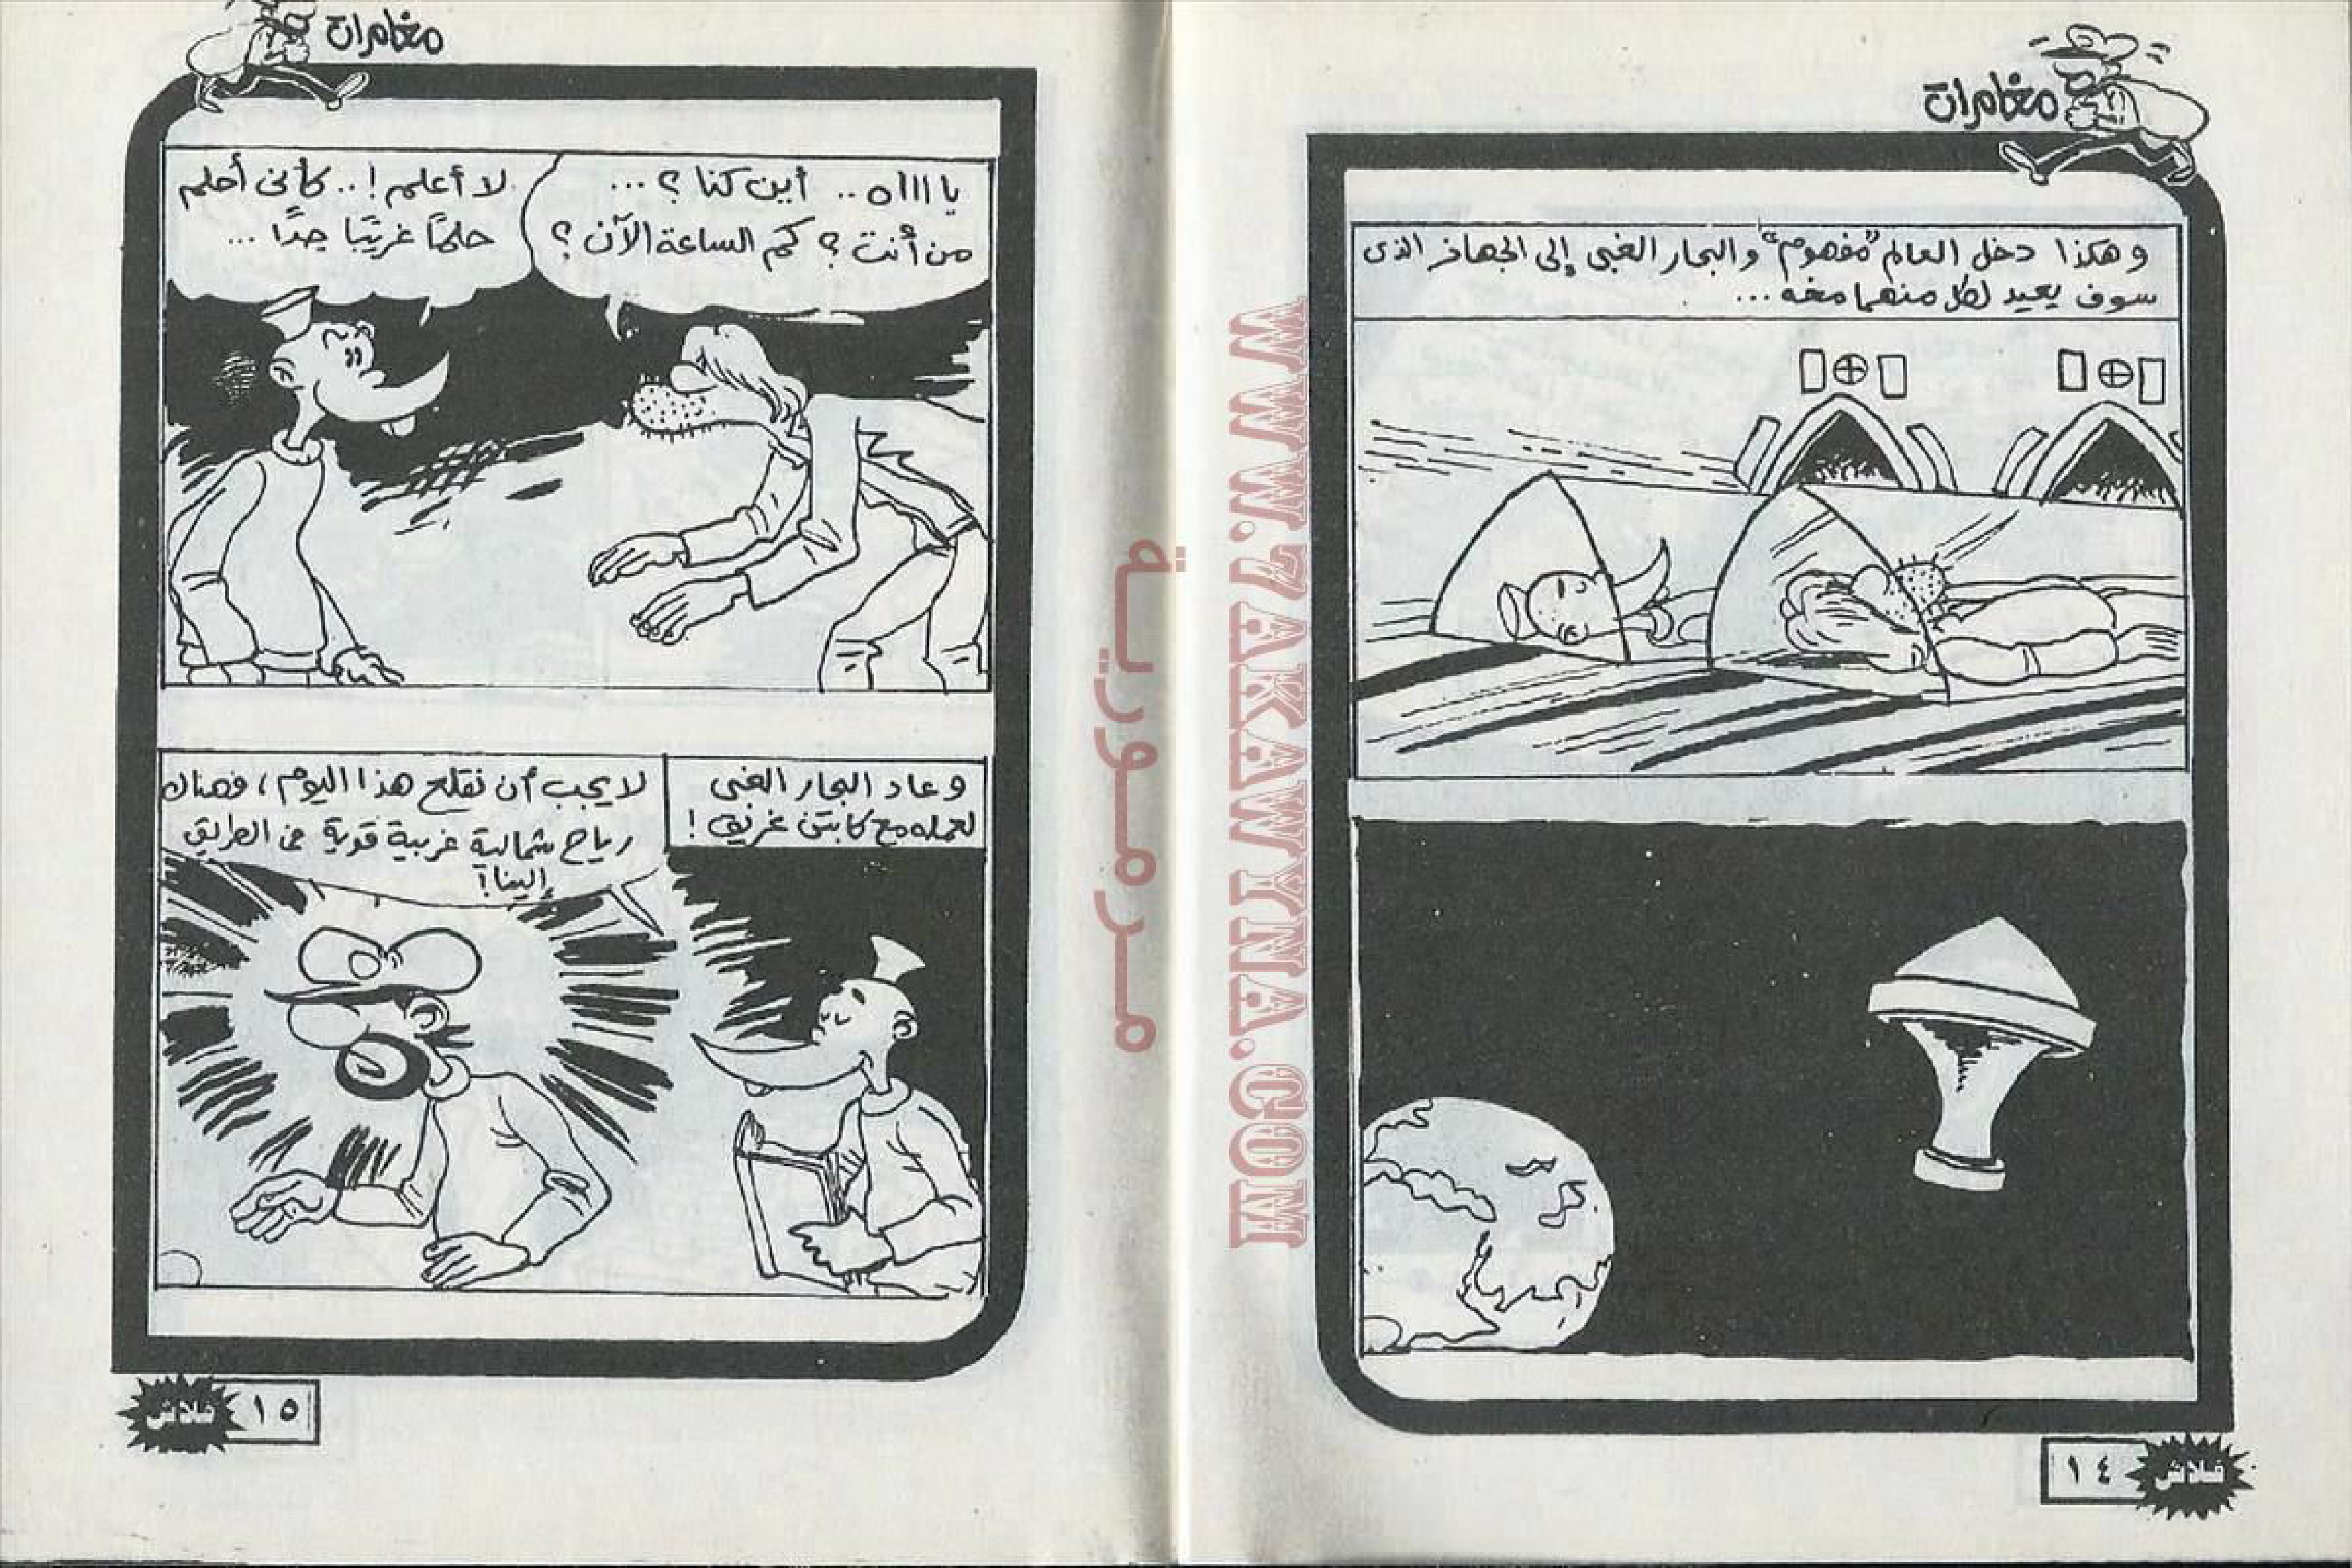 مغامرات
وهكذا دخل العالم "مفهوم" والبحار الغبى إلى الجهاز الذى
سوف يعيد لكل منهما مخه...
١٤
فلاش
مغامرات
ياااااه.. أين كنا؟...
من أنت؟ كم الساعة الآن؟
لا أعلم!.. كأنى أحلم
حلمًا غريبًا جدًا...
وعاد البحار الغبى
لعمله مع كابتن غريق!
لا يجب أن نقلع هذا اليوم، فهناك
رياح شمالية غربية قوية فى الطريق
إلينا؟
١٥
فلاش
مرمورية
WWW.7AKAWYNA.COM